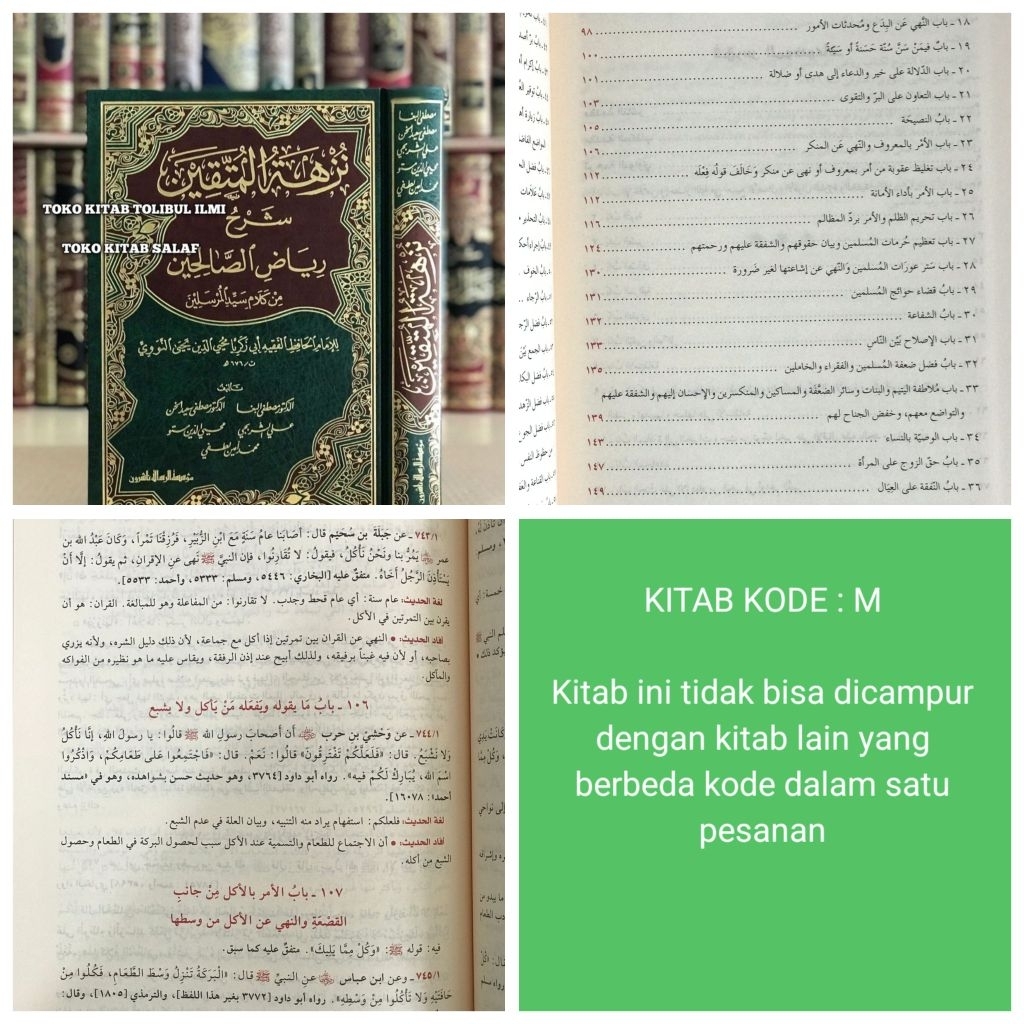 نزهة المتقين
شرح
رياض الصالحين
من كلام سيد المرسلين
للإمام الحافظ الفقيه أبي زكريا محيي الدين يحيى النووي
ت/٦٧٦هـ
تأليف
الدكتور مصطفى البغا الدكتور مصطفى سعيد الخن
علي الشربجي محيي الدين مستو
محمد أمين لطفي
مؤسسة الرسالة ناشرون
مصطفى البغا
مصطفى سعيد الخن
علي الشربجي
محيي الدين مستو
محمد أمين لطفي
نزهة المتقين
مؤسسة الرسالة ناشرون
TOKO KITAB TOLIBUL ILMI
TOKO KITAB SALAF
١٨ - باب النَّهي عَن البِدَع ومُحدثات الأمور ... ٩٨
١٩ - بابٌ فيمَنْ سَنَّ سُنَّة حَسَنةً أو سَيّئةً ... ١٠٠
٢٠ - باب الدّلالة على خير والدعاء إلى هدى أو ضلالة ... ١٠١
٢١ - باب التعاون على البرّ والتقوى ... ١٠٣
٢٢ - بابُ النصيحَة ... ١٠٥
٢٣ - بابُ الأمْر بالمعروف والنّهي عَن المنكر ... ١٠٦
٢٤ - باب تغليظ عقوبة من أمر بمعروف أو نهى عن منكر وَخَالَفَ قولُه فِعْلَه ... ١١٢
٢٥ - باب الأمر بأداء الأمانة ... ١١٢
٢٦ - باب تحريم الظلم والأمر بردّ المظالم ... ١١٦
٢٧ - باب تعظيم حُرمات المُسلمين وبيان حقوقهم والشفقة عليهم ورحمتهم ... ١٢٤
٢٨ - باب سَتر عورَات المُسلمين وَالنّهي عن إشاعتها لغير ضَرورة ... ١٣٠
٢٩ - باب قضاء حوائج المُسلمين ... ١٣١
٣٠ - بابُ الشفاعة ... ١٣٢
٣١ - باب الإصلاح بَيْن النّاس ... ١٣٣
٣٢ - بابُ فضل ضعفة المُسلمين والفقراء والخاملين ... ١٣٥
٣٣ - باب مُلاطفة اليتيم والبنات وسائر الضعَفَة والمساكين والمنكسرين والإحسان إليهم والشفقة عليهم
والتواضع معهم، وخفض الجناح لهم ... ١٣٩
٣٤ - باب الوصيّة بالنساء ... ١٤٣
٣٥ - بابُ حقّ الزوج على المرأة ... ١٤٧
٣٦ - بابُ النّفقة على العِيَال ... ١٤٩
٧٤٣/١ - عن جَبَلَةَ بن سُحَيْم قال: أَصَابَنا عامُ سَنَةٍ مَعَ ابْنِ الزُّبَيْرِ، فَرُزِقْنَا تَمْراً، وَكَانَ عَبْدُ الله بن
عمر يَمُرُّ بنا ونَحْنُ نَأْكُلُ، فيقولُ: لا تُقَارِنُوا، فإن النبيَّ ﷺ نَهى عنِ الإقرانِ، ثم يقولُ: إلَّا أَنْ
يَسْتَأْذِنَ الرَّجُلُ أَخَاهُ. متفقٌ عليه [البخاري: ٥٤٤٦، ومسلم: ٥٣٣٣، وأحمد: ٥٥٣٣].
لغة الحديث: عام سنة: أي عام قحط وجدب. لا تقارنوا: من المفاعلة وهو للمبالغة. القران: هو أن
يقرن بين التمرتين في الأكل.
أفاد الحديث: • النهي عن القران بين تمرتين إذا أكل مع جماعة، لأن ذلك دليل الشره، ولأنه يزري
بصاحبه، أو لأن فيه غبناً برفيقه، ولذلك أبيح عند إذن الرفقة، ويقاس عليه ما هو نظيره من الفواكه
والمآكل.
١٠٦ - بابُ مَا يقوله ويَفعَله مَنْ يَأكل ولا يشبع
٧٤٤/١ - عن وَحْشِيِّ بن حرب أن أصحابَ رسولِ الله ﷺ قالُوا: يا رسولَ اللهِ، إنَّا نَأْكُلُ
وَلَا نَشْبَعُ. قال: «فَلَعَلَّكُمْ تَفْتَرِقُونَ» قالُوا: نَعَمْ. قال: «فَاجْتَمِعُوا عَلى طَعَامِكُمْ، وَاذْكُرُوا
اسْمَ الله، يُبَارَكْ لَكُمْ فيه». رواه أبو داود [٣٧٦٤، وهو حديث حسن بشواهده، وهو في «مسند
أحمد»: ١٦٠٧٨].
لغة الحديث: فلعلكم: استفهام يراد منه التنبيه، وبيان العلة في عدم الشبع.
أفاد الحديث: • أن الاجتماع للطعام والتسمية عند الأكل سبب لحصول البركة في الطعام وحصول
الشبع من أكله.
١٠٧ - بابُ الأمر بالأكل مِنْ جانبِ
القَصْعَةِ والنهي عن الأكل من وسطها
فيه: قوله ﷺ: «وَكُلْ مِمَّا يَلِيكَ». متفقٌ عليه كما سبق.
٧٤٥/١ - وعن ابن عباس عنِ النبيّ ﷺ قال: «الْبَرَكَةُ تَنْزِلُ وَسْطَ الطَّعَامِ، فَكُلُوا مِنْ
حَافَتَيْهِ وَلا تَأْكُلُوا مِنْ وَسْطِهِ». رواه أبو داود [٣٧٧٢ بغير هذا اللفظ]، والترمذي [١٨٠٥]، وقال:
KITAB KODE : M
Kitab ini tidak bisa dicampur
dengan kitab lain yang
berbeda kode dalam satu
pesanan